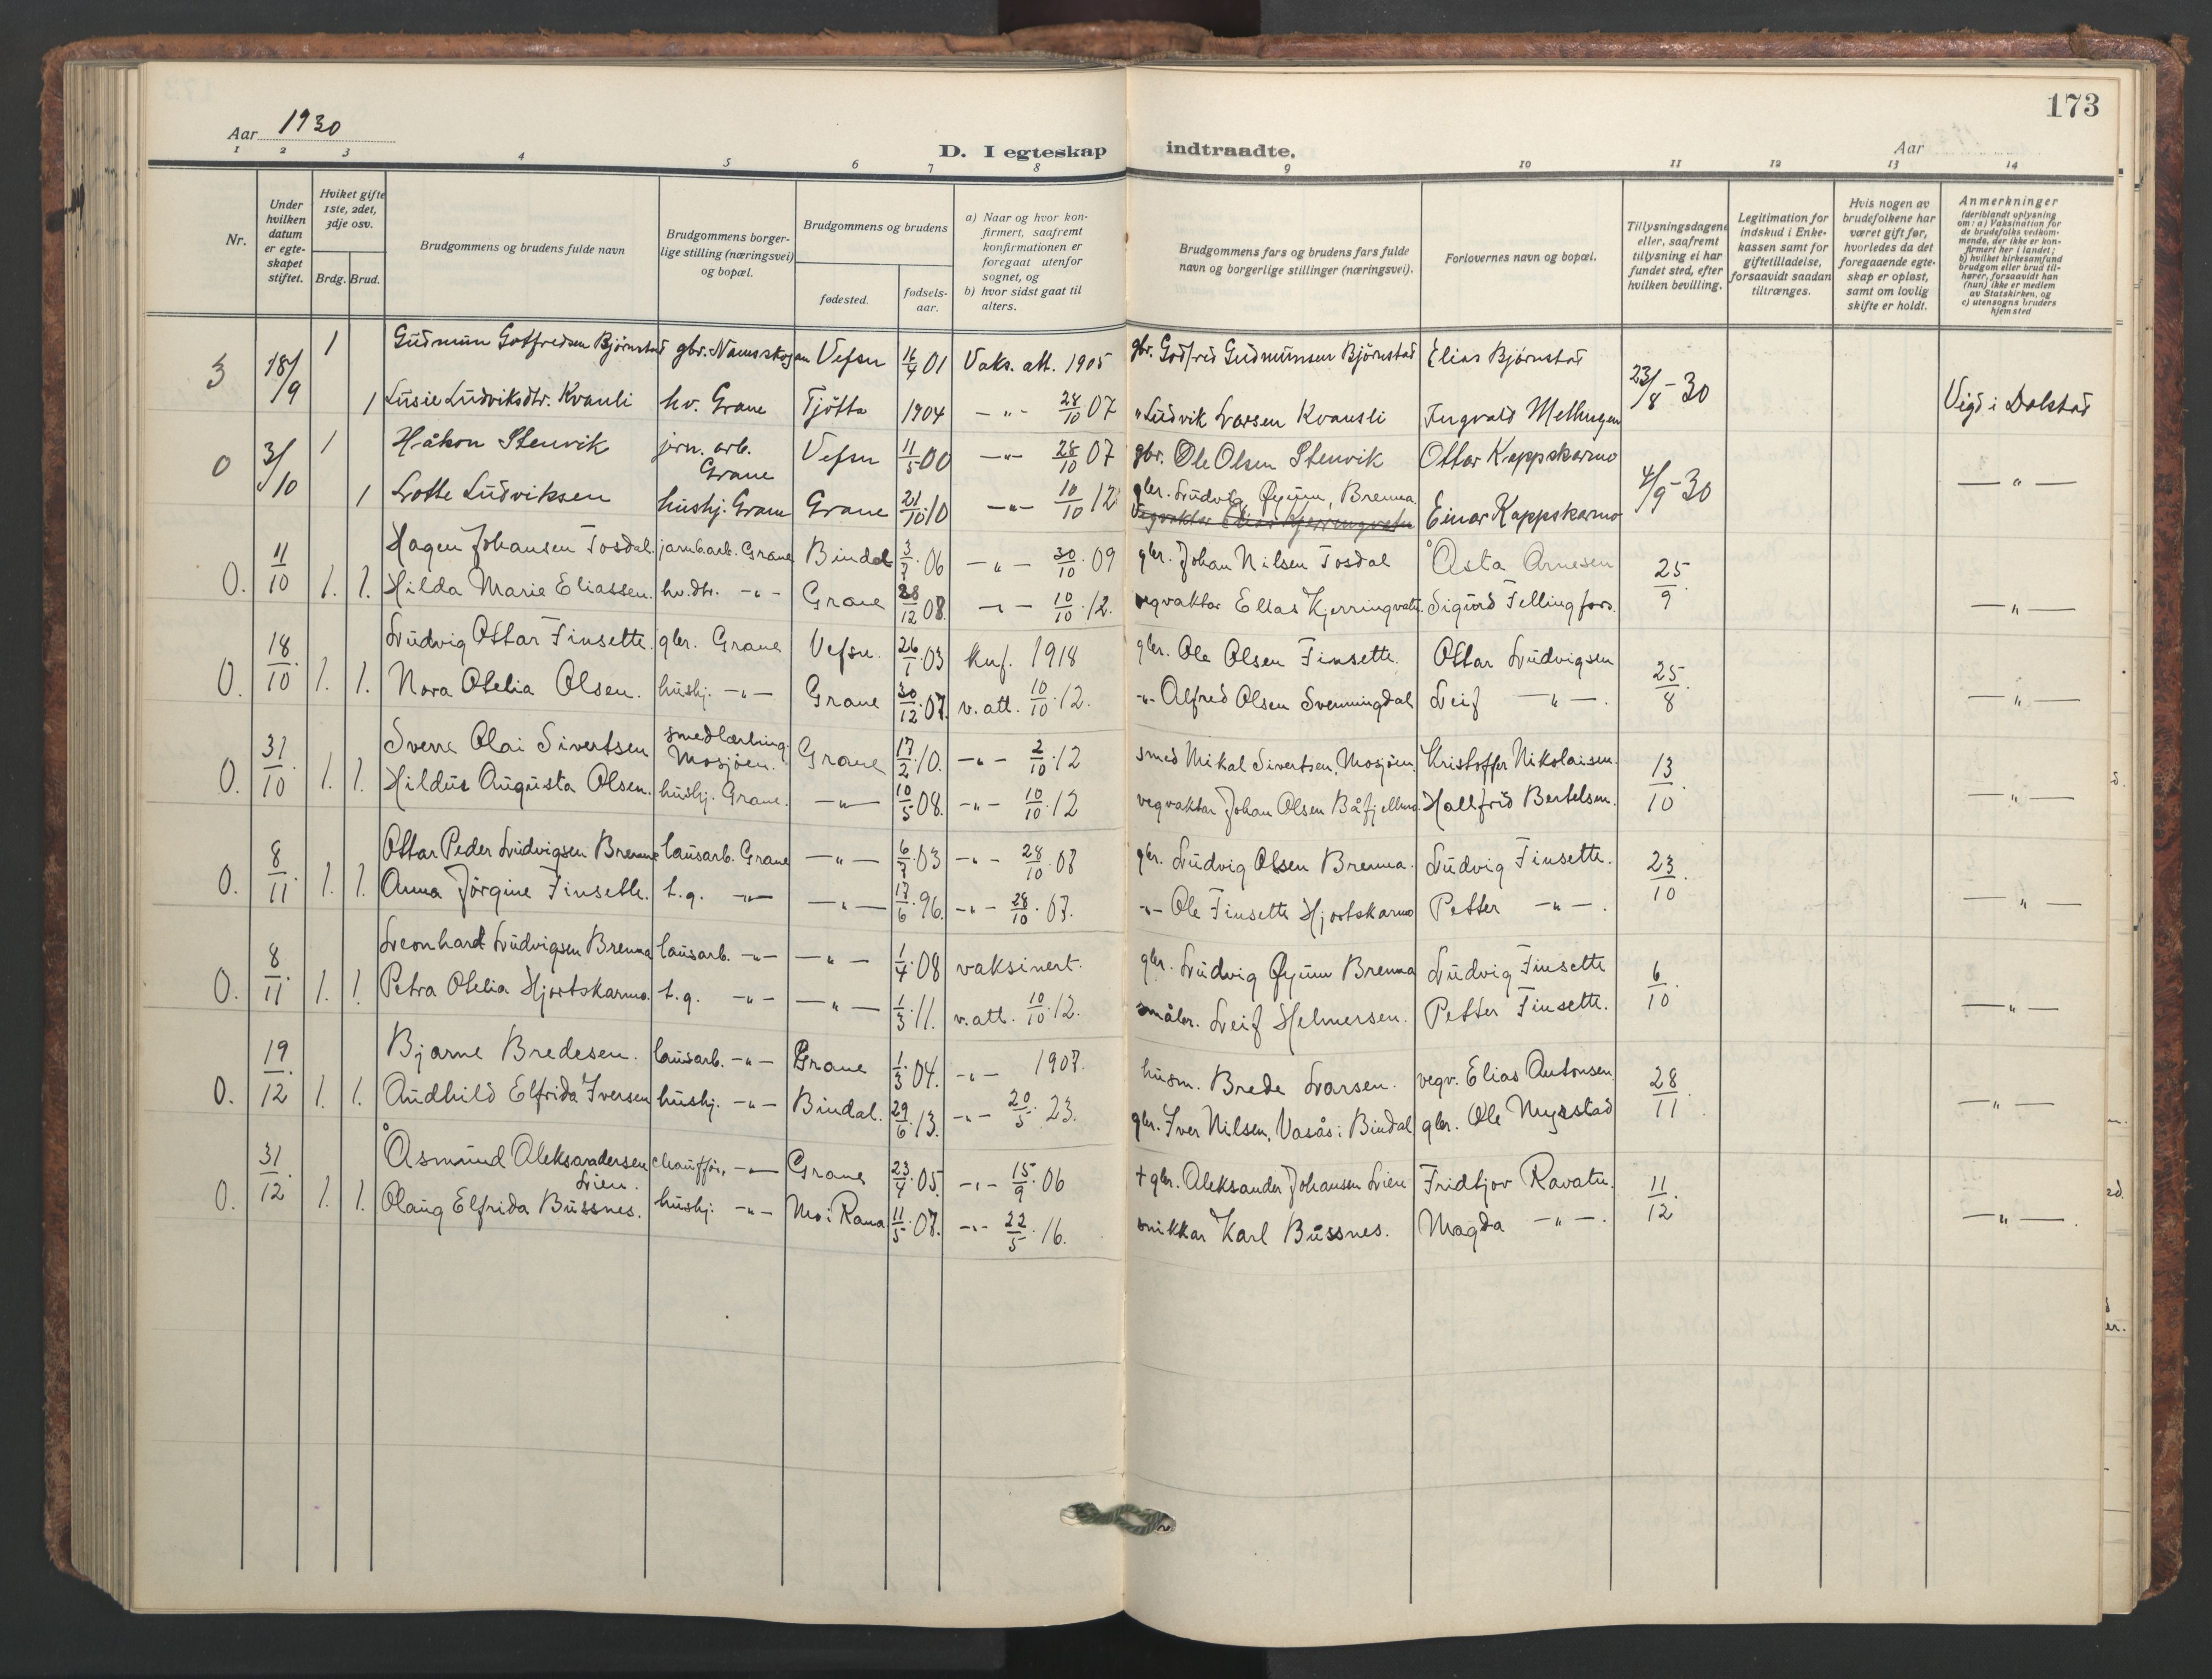 173
Aar 1930
D. I egteskap indtraadte.
Aar
1 2 3 4 5 6 7 8 9 10 11 12 13 14
Nr.
Under hvilken datum er egteskapet stiftet.
Hvilket gifte 1ste, 2det, 3dje osv.
Brdg. Brud.
Brudgommens og brudens fulde navn
Brudgommens borgerlige stilling (næringsvei) og bopæl.
Brudgommens og brudens
fødested.
fødselsaar.
a) Naar og hvor konfirmert, saafremt konfirmationen er foregaat utenfor sognet, og
b) hvor sidst gaat til alters.
Brudgommens fars og brudens fars fulde navn og borgerlige stillinger (næringsvei).
Forlovernes navn og bopæl.
Tillysningsdagene eller, saafremt tillysning ei har fundet sted, efter hvilken bevilling.
Legitimation for indskud i Enkekassen samt for giftetilladelse, forsaavidt saadan tiltrænges.
Hvis nogen av brudefolkene har været gift før, hvorledes da det foregaaende egteskap er opløst, samt om lovlig skifte er holdt.
Anmerkninger (deriblandt oplysning om: a) Vaksination for de brudefolks vedkommende, der ikke er konfirmert her i landet; b) hvilket kirkesamfund brudgom eller brud tilhører, forsaavidt han (hun) ikke er medlem av Statskirken, og c) utensogns bruders hjemsted
3 18/9 1 Gudmun Gotfredsen Bjørnstad gbr. Namsskogan Vefsn 16/4 01 Vaks. att. 1905 gbr. Godfred Gudmunsen Bjørnstad Elias Bjørnstad 23/8-30 Vigd i Dolstad
1 Lusie Ludviksdtr. Kvanli hv. Grane Tjøtta 1904 -"- 28/10 07 " Ludvik Larsen Kvanli Ingvald Melhugen
0 3/10 1 Håkon Stenvik jern. arb. Grane Vefsn 11/5 00 -"- 28/10 07 gbr. Ole Olsen Stenvik Ottar Kappskarmo 4/9-30 -"-
1 Lotte Ludviksen hushj. Grane Grane 21/10 10 -"- 10/10 12 gbr. Ludvig Øyum, Brenna Einar Kappskarmo
Vegvaktar Elias Kjerringvatn
0. 11/10 1. 1. Hagen Johansen Tosdal jarnb.arb. Grane Bindal 3/7.06 -"- 30/10.09 gbr. Johan Nilsen Tosdal Åsta Arnesen 25/9 -"-
Hilda Marie Eliassen. hv.dtr. -"- Grane 28/12 08. -"- 10/10.12. vegvaktar Elias Kjerringvatn. Sigurd Fellingfors.
0. 18/10. 1. 1. Ludvig Ottar Finsette. gbr. Grane Vefsn. 26/1.03 Knf. 1918 gbr. Ole Olsen Finsette. Ottar Ludvigsen 25/8. -"-
Nora Otelia Olsen. hushj. -"- Grane 30/12.07. v. att. 10/10.12. -"- Alfred Olsen Svenningdal Leif -"-.
0. 31/10. 1. 1. Sverre Olai Sivertsen smedlærling. Mosjøen. Grane 17/2.10. -"- 2/10.12 smed Mikal Sivertsen, Mosjøen. Kristoffer Nikolaisen. 13/10 -"-
Hildur Augusta Olsen. hushj. Grane. -"- 10/5 08. -"- 10/10.12 vegvaktar Johan Olsen Båfjellmo. Hallfrid Bertelsen.
0. 8/11. 1. 1. Ottar Peder Ludvigsen Brenna lausarb. Grane -"- 6/7.03 -"- 28/10.07 gbr. Ludvig Olsen Brenna. Ludvig Finsette. 23/10. -"-
Anna Jørgine Finsette. t.g. -"- -"- 17/6.96. -"- 28/10.07. -"- Ole Finsette Hjortskarmo Petter -"-.
0. 8/11. 1. 1. Leonhard Ludvigsen Brenna lausarb. -"- -"- 1/4.08 vaksinert. gbr. Ludvig Øyum Brenna Ludvig Finsette 6/10. -"-
Petra Otelia Hjortskarmo. t.g. -"- -"- 1/3.11. v. att. 10/10.12. småbr. Leif Helmersen. Petter Finsette.
0. 19/12. 1. 1. Bjarne Bredesen. lausarb. -"- Grane 1/3.04. -"- 1907. husm. Brede Larsen. vegv. Elias Antonsen. 28/11. -"-
Audhild Elfrida Iversen hushj. -"- Bindal. 29/6.13. -"- 20/5.23. gbr. Iver Nilsen, Vasås i Bindal gbr. Ole Myrstad
0. 31/12. 1. 1. Åsmund Aleksandersen Lien. chauffør, -"- Grane 23/4.05. -"- 15/9.06 † gbr. Aleksander Johansen Lien Fridtjov Ravatn. 11/12. -"-.
Olaug Elfrida Bussnes. hushj. -"- Mo i Rana 11/5.07. -"- 22/5.16. snikkar Karl Bussnes. Magda -"-.